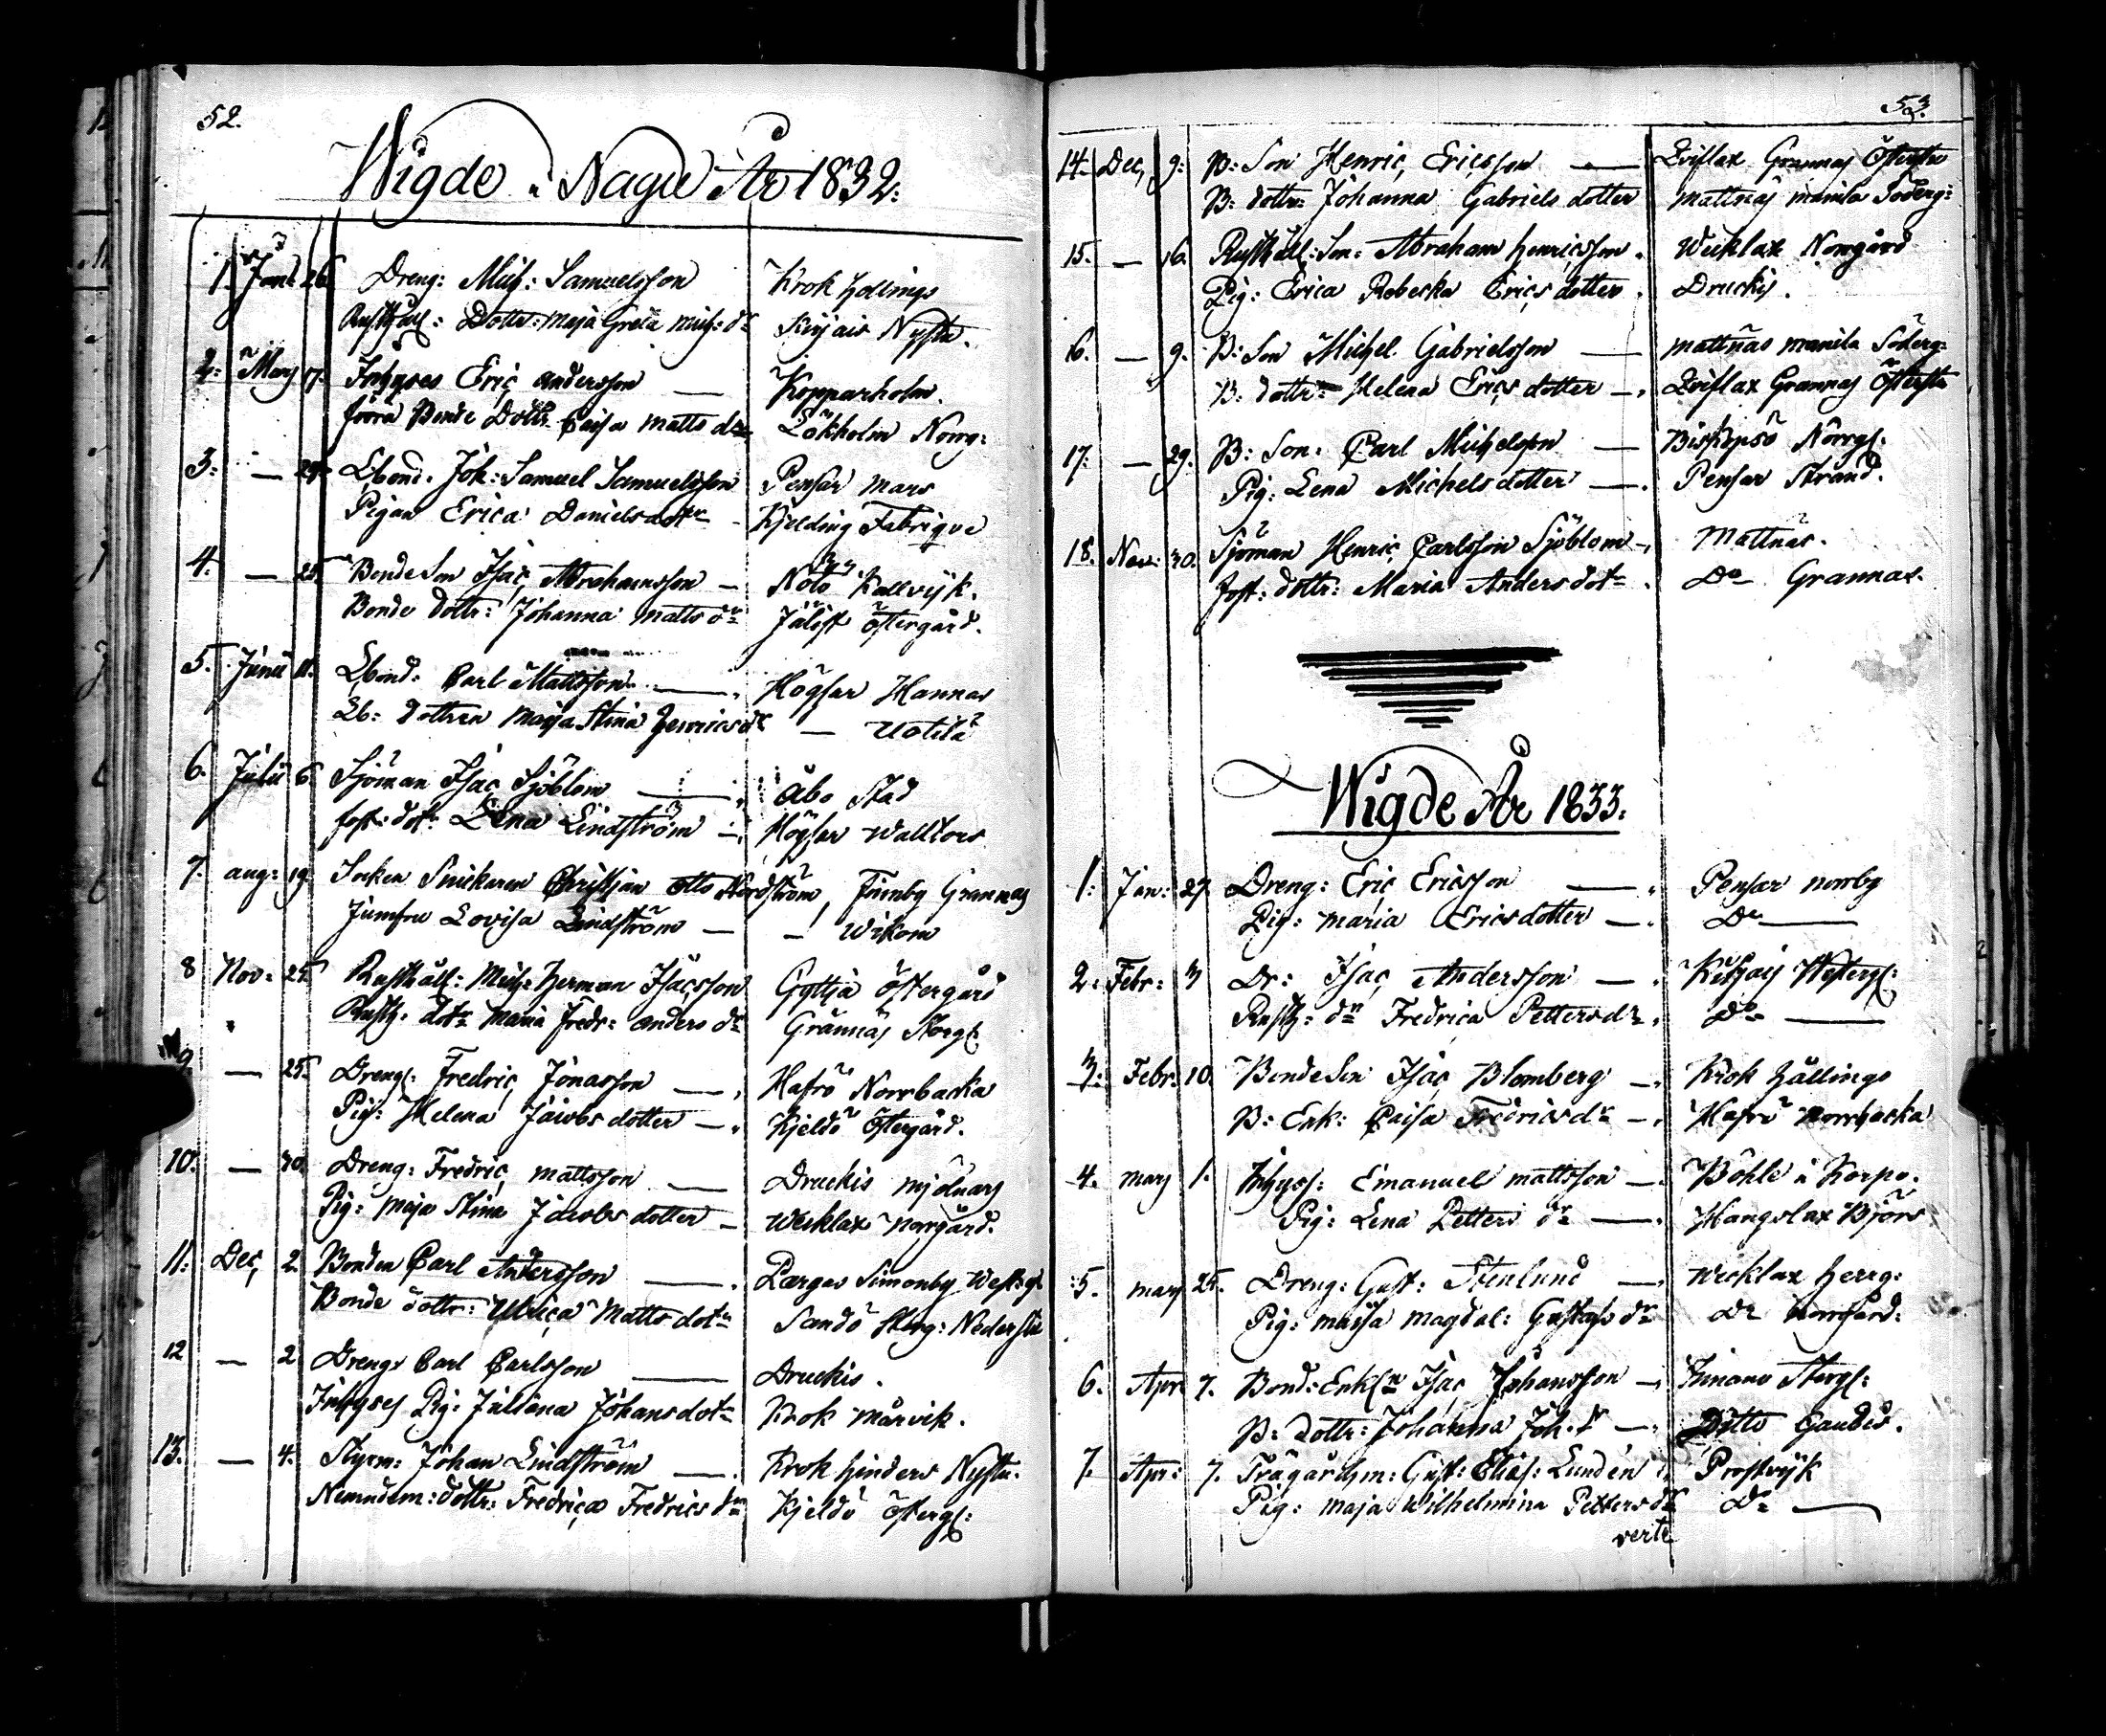 52.
Wigde i Nagu År 1832:
1. Jan: 26. Dreng: Mich: Samuelsson Krok Hollings
Rusthåll: Dottr: Maja Greta Mich: dr Nystu.
2. Maj 17. Inhyses Eric Andersson — Kopparholm.
förra Bonde Dottr Caisa Matts dr Lökholm Norrg:
3: — Lbond. Joh: Samuel Samuelsson Pensar Mars
Pigan Erica Danielsdotr Kjelding Fabrique
4. — 25. Bonde Son Isac Abrahamsson — Nötö Kallvijk.
Bonde Dottr: Johanna Matts dr Jälist Östergård.
5. Junii 11. Lbond: Carl Mattsson — Högsar Hannas
Lb: Dottren Maija Stina Henricsdr — Uotila
6. Julii 6. Sjöman Isac Sjöblom — Åbo Stad
fost: dotr: Lena Lindström — Högsar Walltors
7. aug: 19. Socken Snickaren Christian Otto Nordström, Finnby Grannas
Jumfru Lovisa Lindström — — Wikom
8 Nov: 25. Rusthåll: Mich: Herman Isacsson Gyttja Östergård
Rusth: dotr Maria Fredr: Anders dr Grännäs Storg:
9. — 25. Dreng: Fredric Jonasson — Hafrö Norrbacka
Pig: Helena Jacobs dotter — Kjeldö Östergård.
10. — 30. Dreng: Fredric Mattsson — Druckis Mjölnars
Pig: Maja Stina Jacobs dotter — Wecklax Norrgård.
11: Dec, 2. Bonden Carl Andersson — Pargas Simonby Westerg:
Bonde dottr: Ulrica Matts dotr Sandö Storg: Nederstu
12 — 2 Dreng: Carl Carlsson — Druckis.
Inhyses Pig: Juliana Johansdotr Krok Mårvik.
13. — 4. Styrm: Johan Lindström — Krok Hinders Nystu.
Nemndem: dottr: Fredrica Fredrics dr Kjeldö Österg:
53.
14. Dec, 9: B: Son Henric Ericsson — Lofslax Grannas Öfverstu
B: dottr: Johanna Gabriels dotter Mattnäs Manila Söderg:
15. — 16. Rusthåll: Son: Abraham Henricsson. Wecklax Norrgård
Pig: Erica Rebecka Erics dotter. Druckis.
16. — 9. B: Son Michel Gabrielsson — Mattnäs Manila Söderg:
B: dottr: Helena Erics dotter —. Lofslax Grannas Öfverstu
17. — 29. B: Son: Carl Michelsson — Biskopsö Norrg:
Pig: Lena Michels dotter —. Pensar Strand.
18. Nov: 30. Sjöman Henric Carlsson Sjöblom —. Mattnäs.
fost: dottr: Maria Anders dotr. Do Grannas.
Wigde År 1833.
1: Jan: 27. Dreng: Eric Ericsson —. Pensar Norrby
Pig: Maria Ericsdotter —. Do —
2: Febr: 3 Dr: Isac Andersson —. Westerg:
Rusth: dr Fredrica Petters dr. Do —
3: Febr: 10. Bonde Son Isac Blomberg —. Krok Hållings
B: Enk: Caisa Fredrics dr —. Hafrö Norrbacka
4. Maij 1. Inhyss: Emanuel Mattsson —. Böhle i Korpo.
Pig: Lena Petters dr —. Mangslax Björs
5. Marz 25. Dreng: Gust: Stenlund —. Wecklax Herrg:
Pig: Maija Magdal: Gustafs dr Do Norrgård:
6. Apr: 7. Bond: Enkl: Isac Johansson —. Storg:
B: dottr: Johanna Joh: dr —. Ditto Gaudis.
7. Apr: 7. Trägårdsm: Gust: Elias: Lundén Prostvijk
Pig: Maja Wilhelmina Petters dr Do —
verte